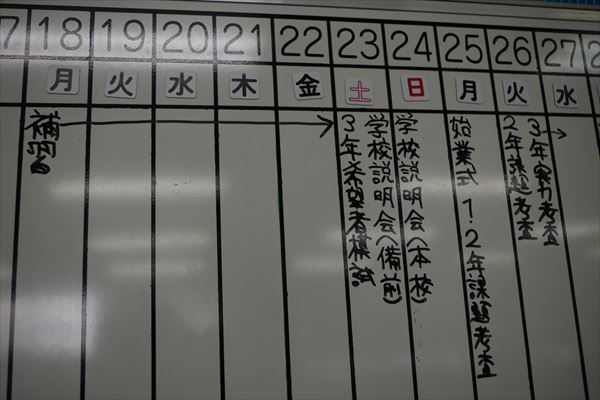 7 18 19 20 21 22 23 24 25 26 27 2
月 火 水 木 金 土 日 月 火 水
補習
学校説明会(備前)
3年希望者模試
学校説明会(本校)
始業式 1.2年課題考査
3年実力考査
2年課題考査